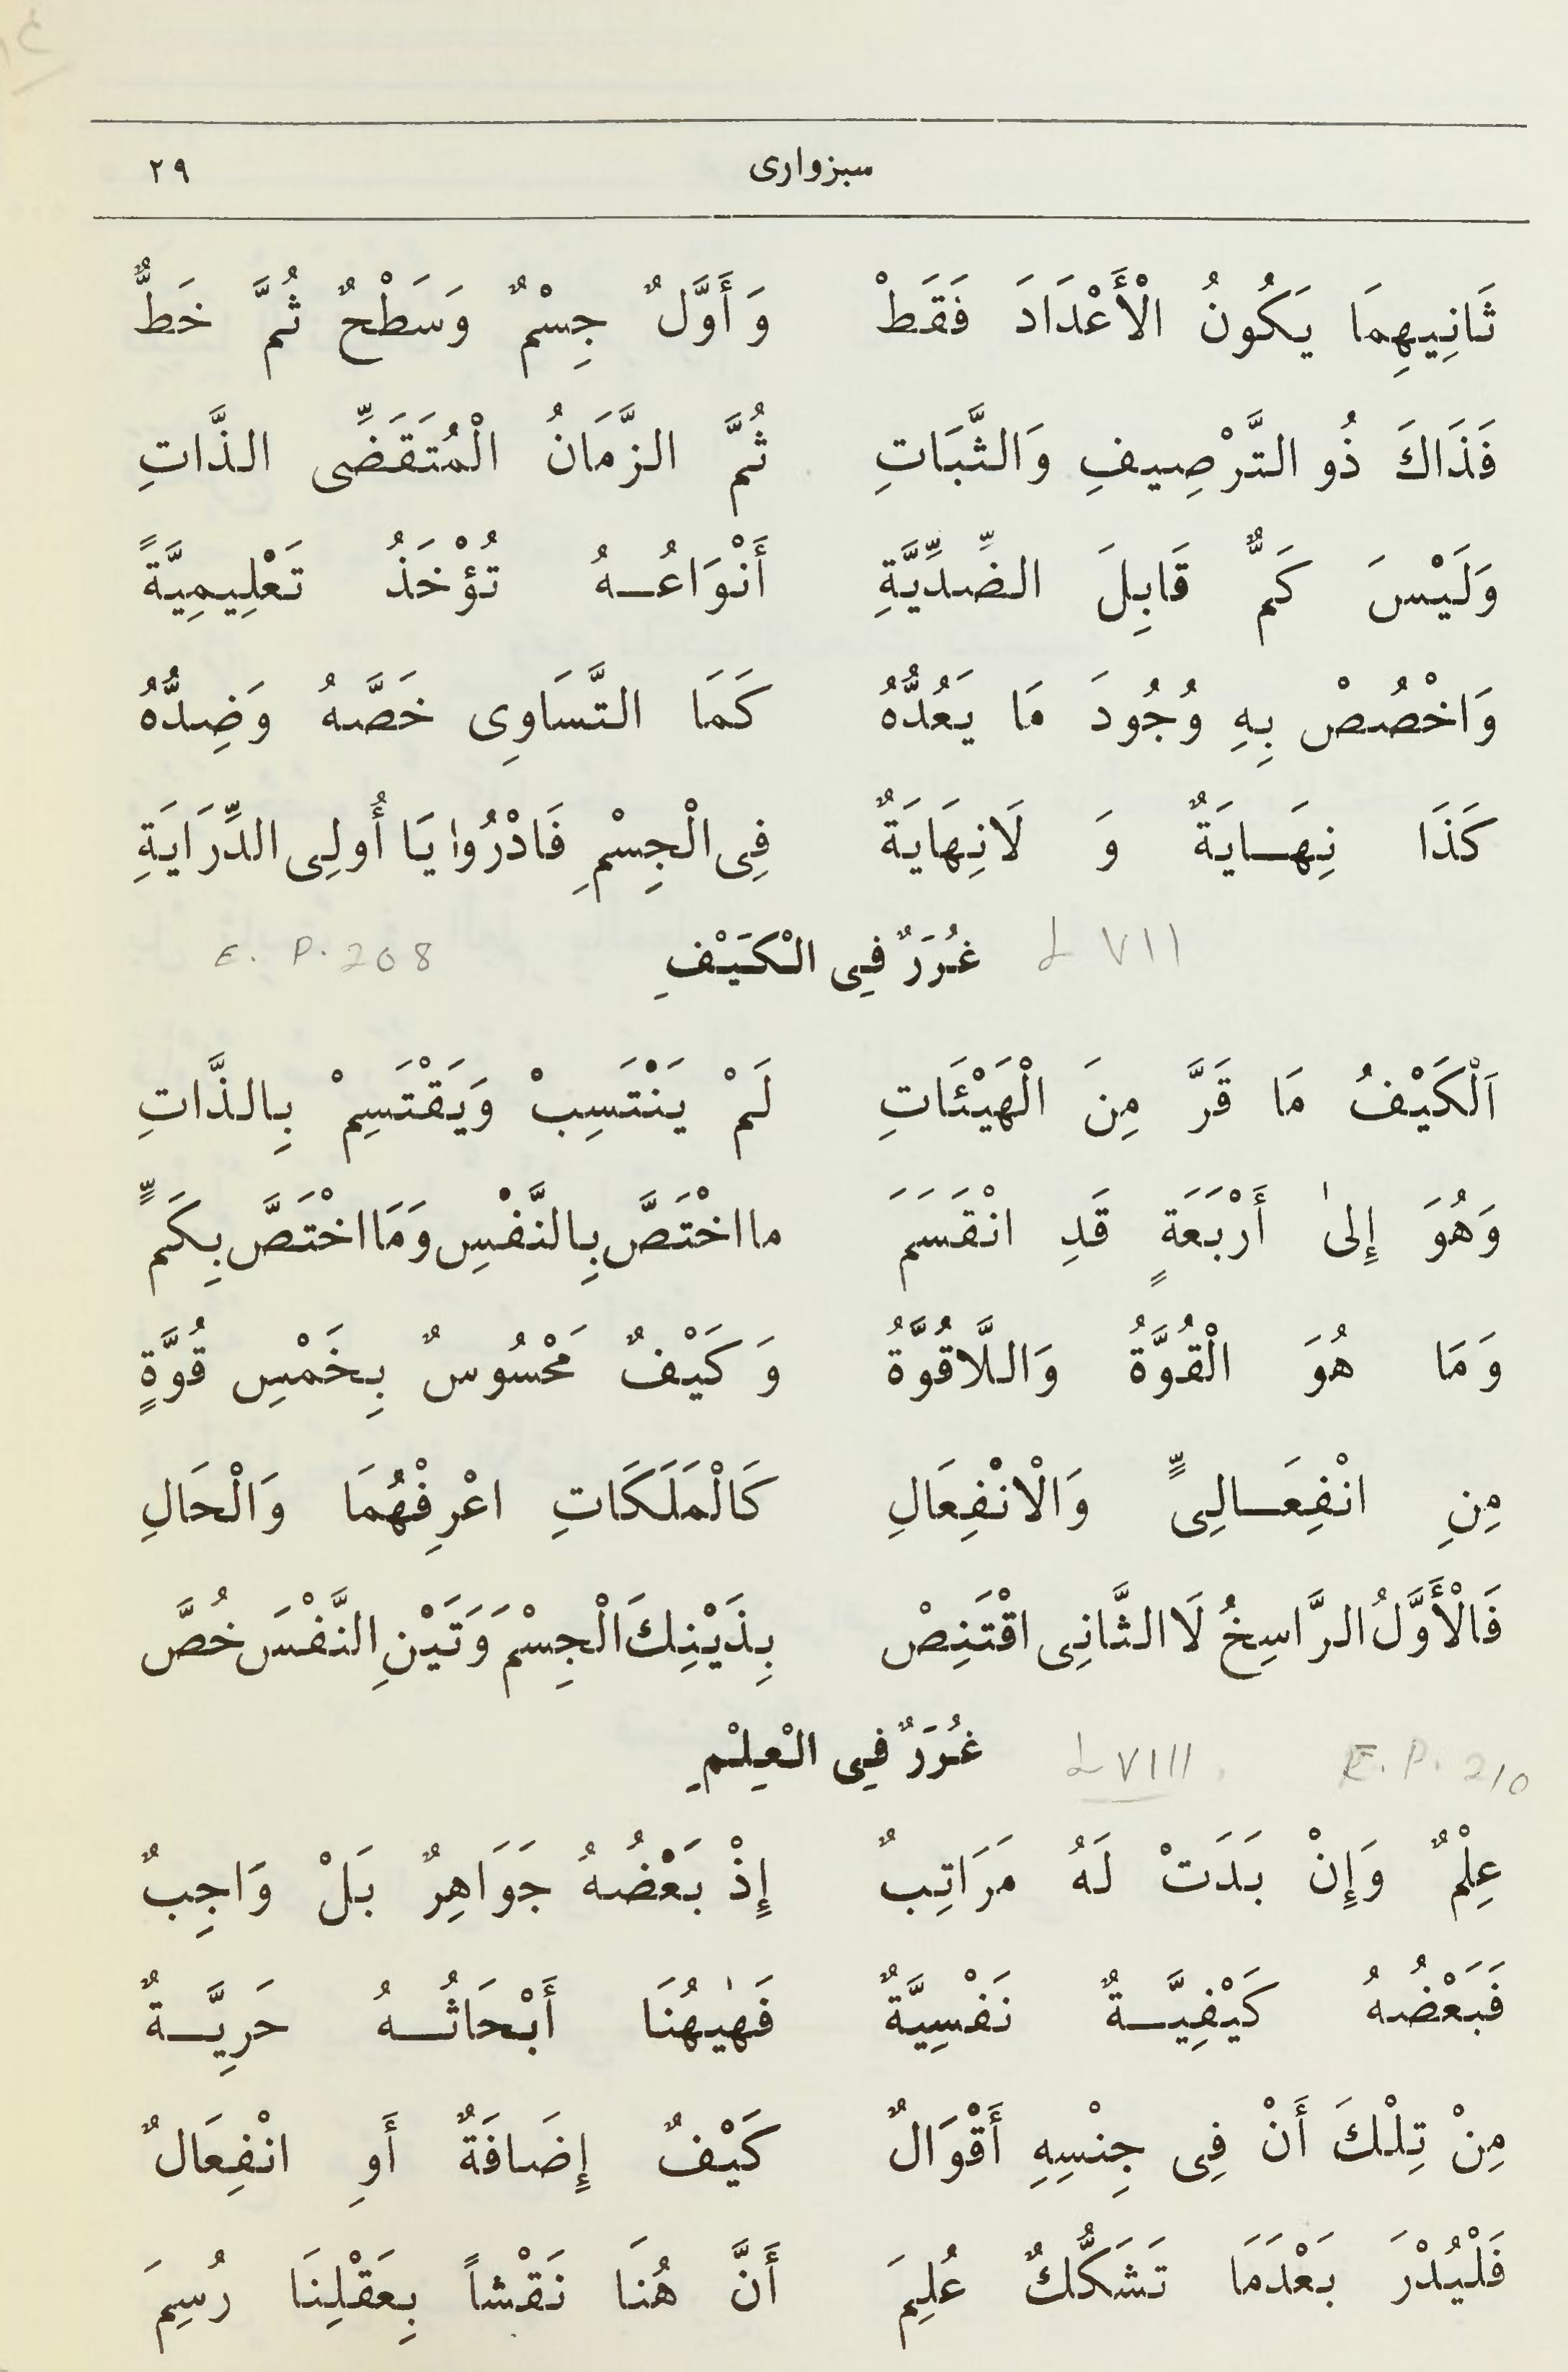 سبزواری ٢٩
ثَانِيهِمَا يَكُونُ الْأَعْدَادَ فَقَطْ وَ أَوَّلٌ جِسْمٌ وَسَطْحٌ ثُمَّ خَطٌّ
فَذَاكَ ذُو التَّرْصِيفِ وَالثَّبَاتِ ثُمَّ الزَّمَانُ الْمُتَقَضِّى الذَّاتِ
وَلَيْسَ كَمٌّ قَابِلَ الضِّدِّيَّةِ أَنْوَاعُهُ تُؤْخَذُ تَعْلِيمِيَّةً
وَاخْصُصْ بِهِ وُجُودَ مَا يَعُدُّهُ كَمَا التَّسَاوِى خَصَّهُ وَضِدُّهُ
كَذَا نِهَايَةٌ وَ لَانِهَايَةٌ فِى الْجِسْمِ فَادْرُوا يَا أُولِى الدِّرَايَةِ
غُرَرٌ فِى الْكَيْفِ LVII E. P. 208
اَلْكَيْفُ مَا قَرَّ مِنَ الْهَيْئَاتِ لَمْ يَنْتَسِبْ وَيَقْتَسِمْ بِالذَّاتِ
وَهُوَ إِلىٰ أَرْبَعَةٍ قَدِ انْقَسَمَ مااخْتَصَّ بِالنَّفْسِ وَمَااخْتَصَّ بِكَمٍّ
وَ مَا هُوَ الْقُوَّةُ وَاللَّاقُوَّةُ وَ كَيْفٌ مَحْسُوسٌ بِخَمْسِ قُوَّةٍ
مِنِ انْفِعَالِىٍّ وَالْانْفِعَالِ كَالْمَلَكَاتِ اعْرِفْهُمَا وَالْحَالِ
فَالْأَوَّلُ الرَّاسِخُ لَا الثَّانِى اقْتَنِصْ بِذَيْنِكَ الْجِسْمَ وَتَيْنِ النَّفْسَ خُصَّ
غُرَرٌ فِى الْعِلْمِ LVIII E. P. 210
عِلْمٌ وَإِنْ بَدَتْ لَهُ مَرَاتِبٌ إِذْ بَعْضُهُ جَوَاهِرٌ بَلْ وَاجِبٌ
فَبَعْضُهُ كَيْفِيَّةٌ نَفْسِيَّةٌ فَهٰيهُنَا أَبْحَاثُهُ حَرِيَّةٌ
مِنْ تِلْكَ أَنْ فِى جِنْسِهِ أَقْوَالٌ كَيْفٌ إِضَافَةٌ أَوِ انْفِعَالٌ
فَلْيُدْرَ بَعْدَمَا تَشَكُّكٌ عُلِمَ أَنَّ هُنَا نَقْشاً بِعَقْلِنَا رُسِمَ